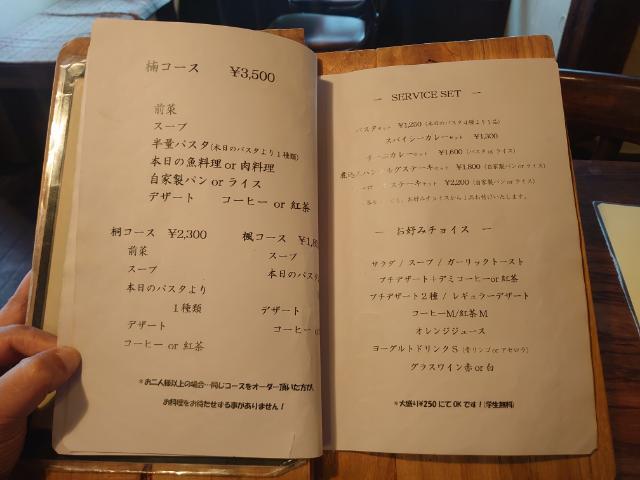 楠コース ¥3,500
前菜
スープ
半量パスタ(本日のパスタより1種類)
本日の魚料理 or 肉料理
自家製パン or ライス
デザート コーヒー or 紅茶
桐コース ¥2,300
前菜
スープ
本日のパスタより
1種類
デザート
コーヒー or 紅茶
楓コース ¥1,8
スープ
本日のパスタ
デザート
コーヒー o
*お二人様以上の場合…同じコースをオーダー頂いた方が、
お料理をお待たせする事がありません!
ー SERVICE SET ー
パスタセット ¥1,250 (本日のパスタ4種より1品)
スパイシーカレーセット ¥1,300
カレーセット ¥1,600 (パスタ or ライス)
グステーキセット ¥1,800 (自家製パン or ライス)
ステーキセット ¥2,200 (自家製パン or ライス)
お好みチョイスから1品お付けいたします。
ー お好みチョイス ー
サラダ / スープ / ガーリックトースト
プチデザート+デミコーヒー or 紅茶
プチデザート2種 / レギュラーデザート
コーヒーM/紅茶M
オレンジジュース
ヨーグルトドリンクS (青リンゴ or アセロラ)
グラスワイン赤 or 白
*大盛り¥250 にて OK です!(学生無料)